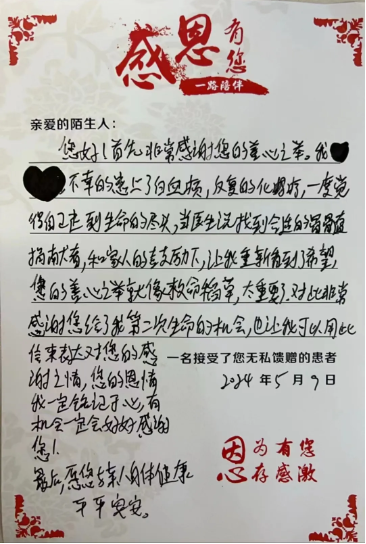 感恩有您
一路陪伴
亲爱的陌生人：
您好！首先非常感谢您的善心之举。我
不幸的患上了白血病，反复的化疗，一度觉
得自己走到生命的尽头，当医生说找到合适的骨髓
捐献者，和家人的支持下，让我重新看到了希望，
您的善心之举就像救命稻草，太重要了.对此非常
感谢您给了我第二次生命的机会，也让我可以用此
信来表达对您的感
一名接受了您无私馈赠的患者
谢之情，您的恩情
2024年5月9日
我一定铭记于心，有
机会一定会好好感谢
您！
最后，愿您与家人身体健康
平平安安。
感恩
为有您
心存感激